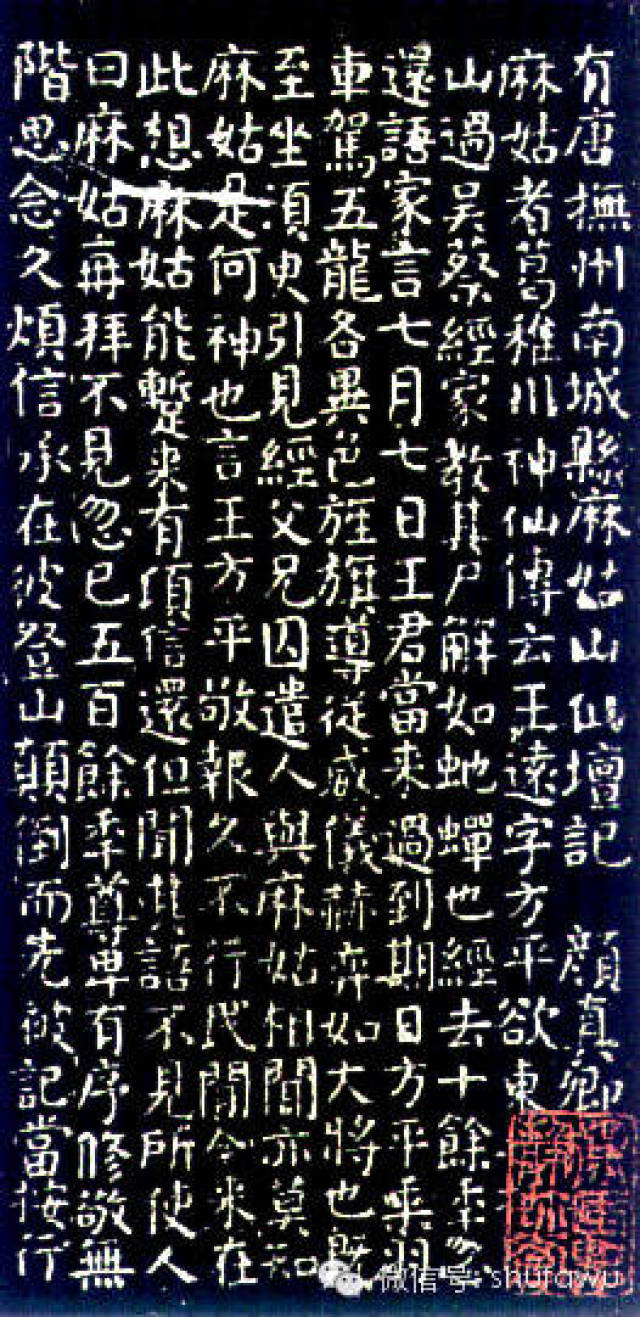 有唐撫州南城縣麻姑山仙壇記 顔真卿
麻姑者葛稚川神仙傳云王遠字方平欲東
山過吴蔡經家教其尸解如虵蟬也經去十餘年忽
還語家言七月七日王君當来過到期日方平乘羽
車駕五龍各異色旌旗導從威儀赫弈如大將也既
至坐須臾引見經父兄因遣人與麻姑相聞亦莫知
麻姑是何神也言王方平敬報久不行民間今来在
此想麻姑能蹔来有頃信還但聞其語不見所使人
曰麻姑再拜不見忽已五百餘年尊卑有序修敬無
階思念久煩信承在彼登山顛倒而先被記當按行
微信号: shufawu